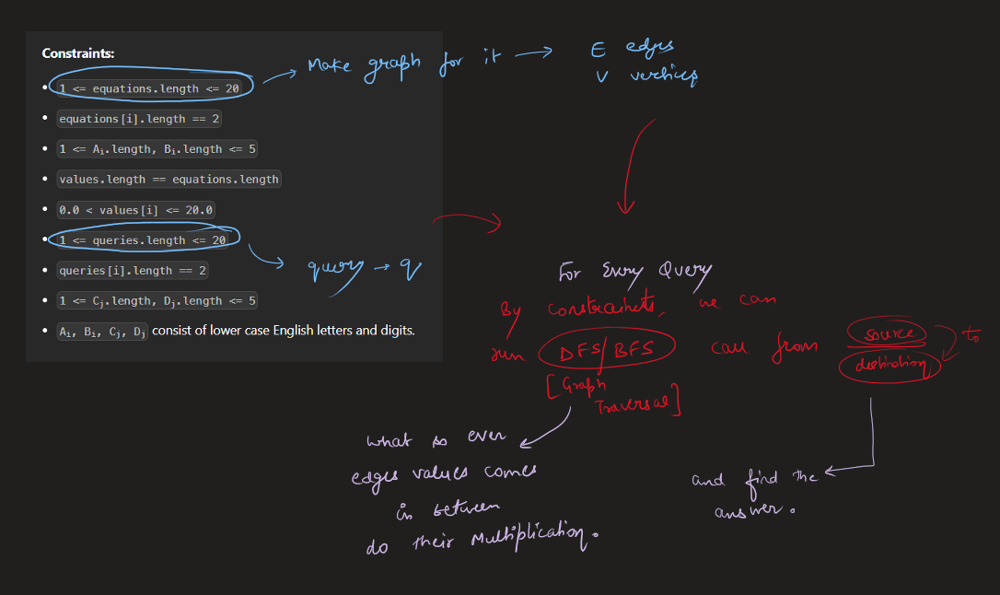 Constraints:
1 <= equations.length <= 20
equations[i].length == 2
1 <= Ai.length, Bi.length <= 5
values.length == equations.length
0.0 < values[i] <= 20.0
1 <= queries.length <= 20
queries[i].length == 2
1 <= Cj.length, Dj.length <= 5
Ai, Bi, Cj, Dj consist of lower case English letters and digits.
Make graph for it
E edges
V vertices
query → q
For Every Query
By constraints, we can
run DFS/BFS call from source to
destination
[Graph
Traversal]
what so ever
edges values comes
in between
do their Multiplication.
and find the
answer.